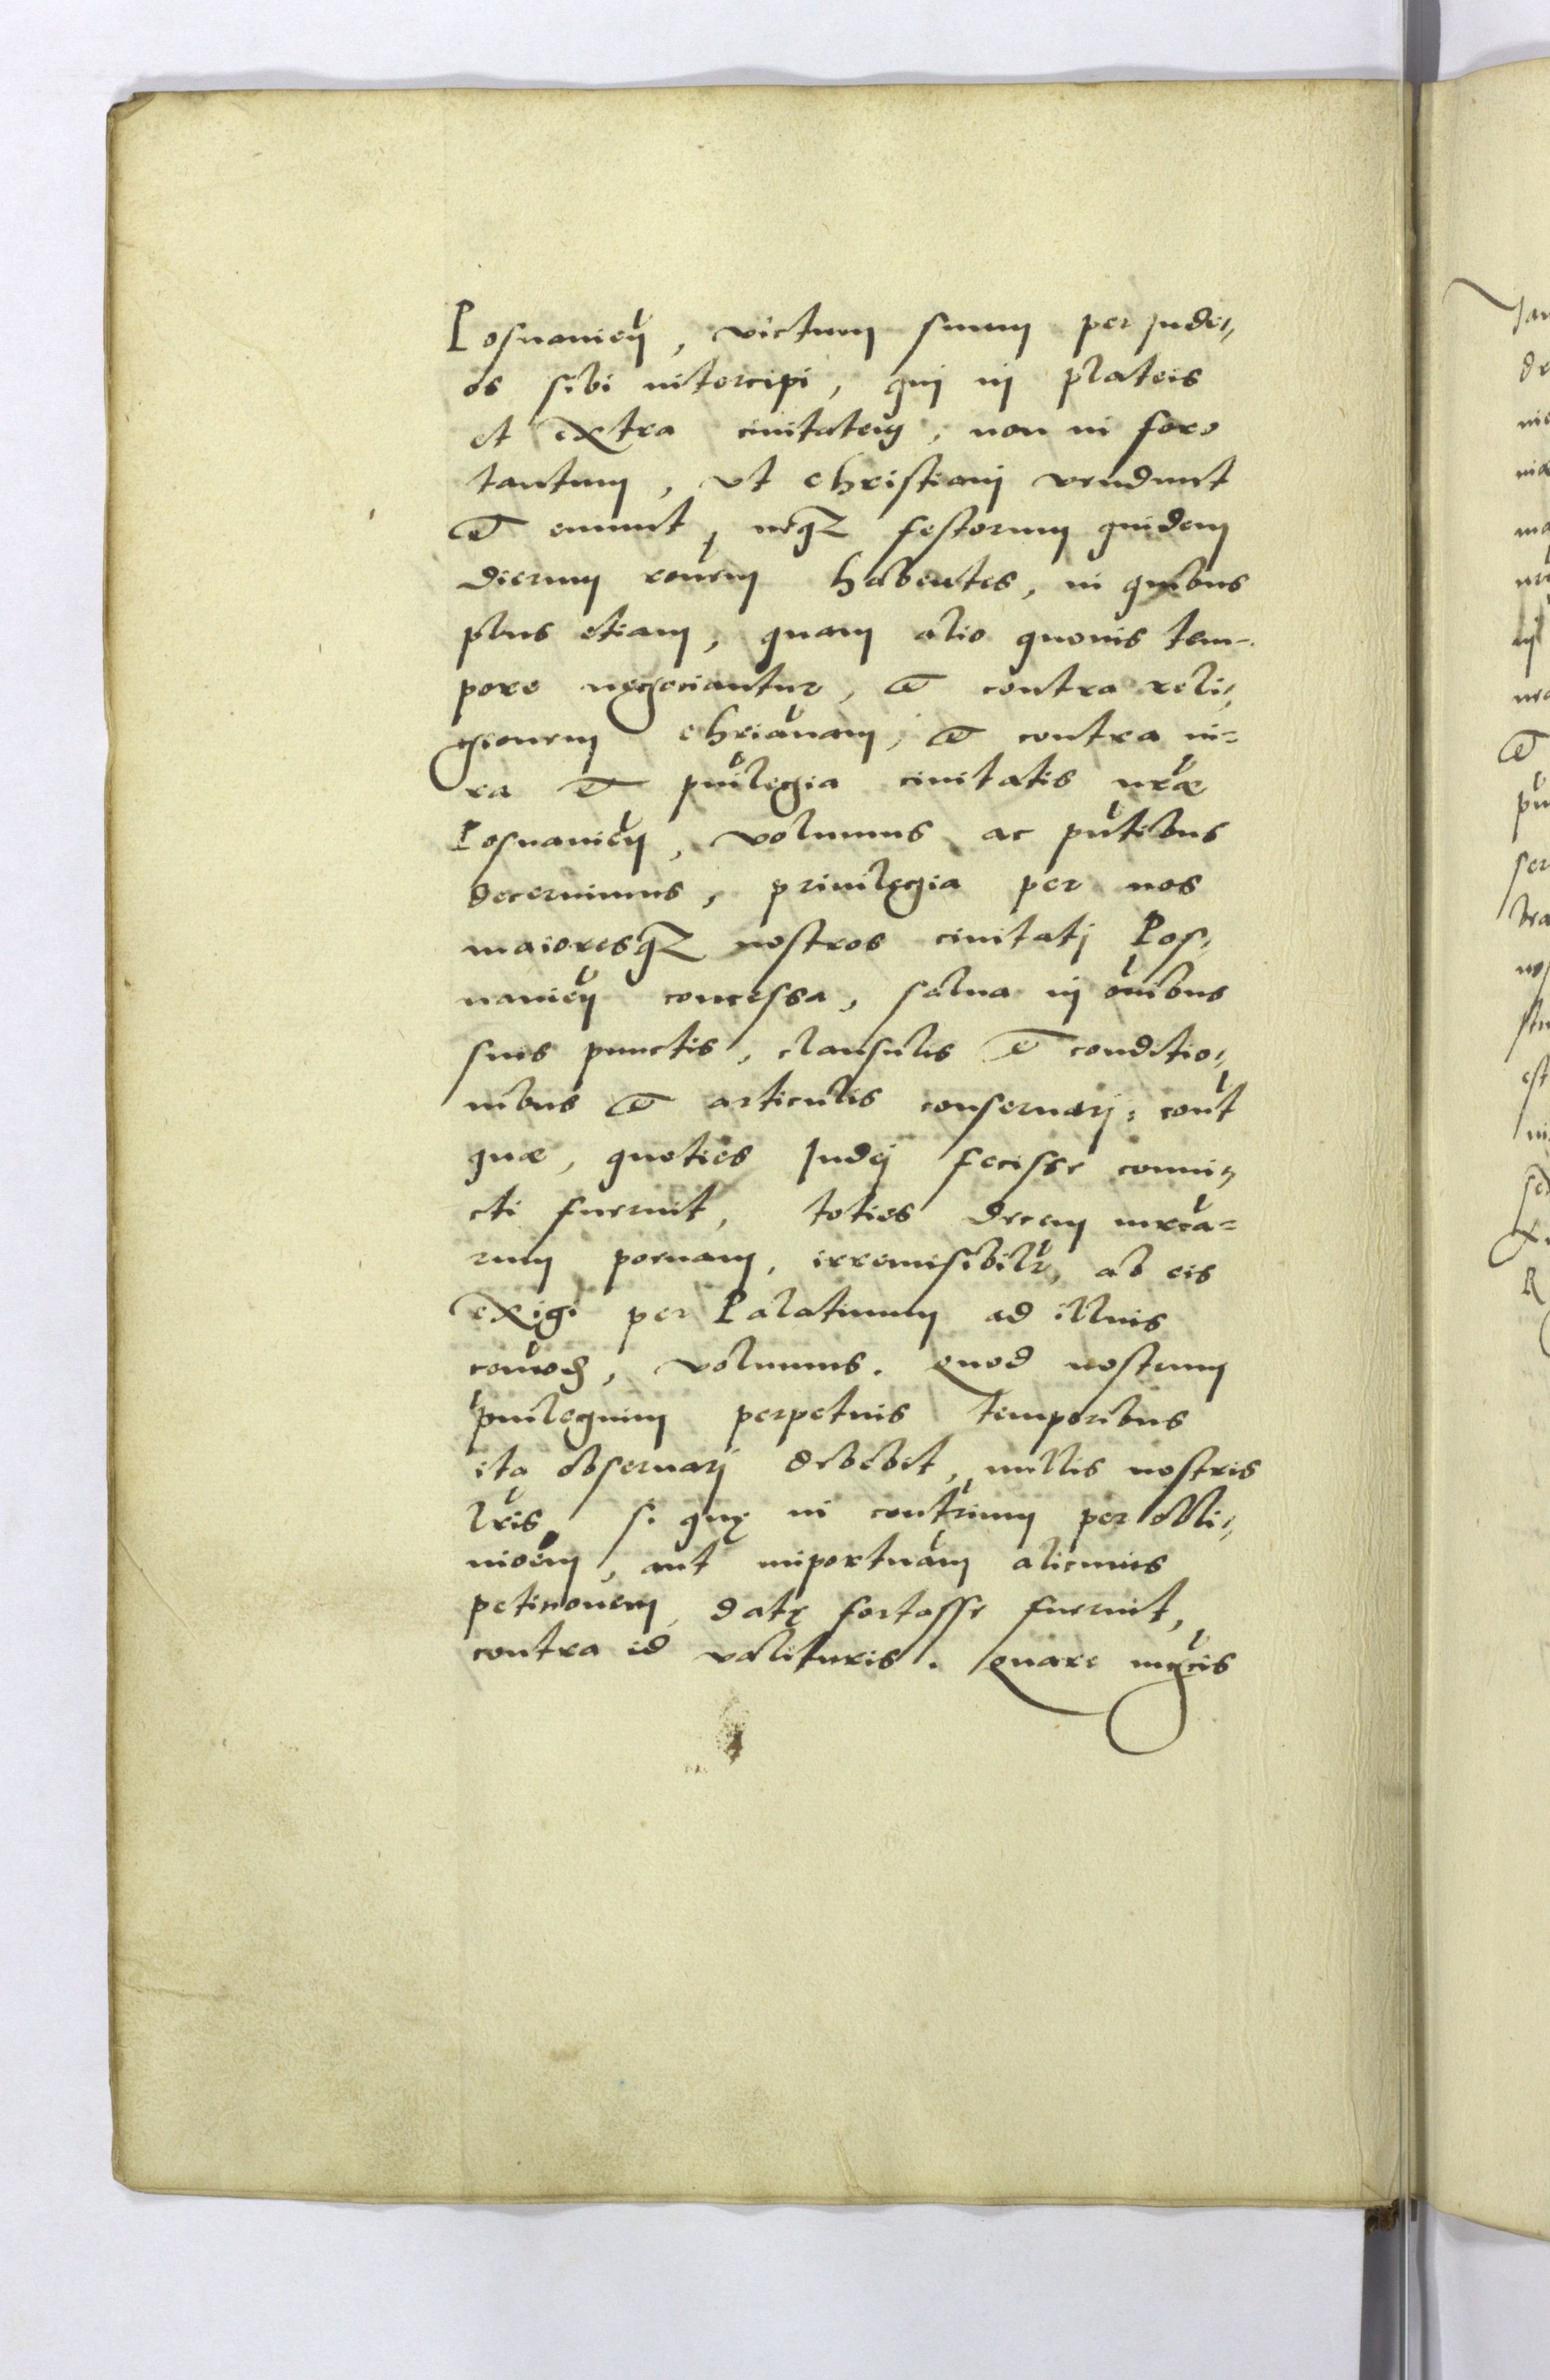 Posnanien̄, victum suum per Jude⸗
os sibi intercipi, qui in plateis
et extra ciuitatem, non in foro
tantum, vt christiani vendunt
& emunt, neqꝫ festorum quidem
dierum rōnem habentes, in quibus
plus etiam, quam alio quouis tem⸗
pore negociantur, & contra reli⸗
gionem chrianam, & contra iu⸗
ra & puilegia ciuitatis nr̄æ
Posnanien̄, volumus ac pn̄tibus
decernimus, priuilegia per nos
maioresqꝫ nostros ciuitati Pos⸗
nanien̄ concessa, salua in om̄ibus
suis punctis, clausulis & conditio⸗
nibus & articulis conseruari: cont̄
quæ, quoties Judei fecisse conui⸗
cti fuerint, toties decem mrca⸗
rum poenam, irremisibilr̄, ab eis
exigi per Palatinum ad illius
volumus. Quod nostrum
puilegium perpetuis temporibus
ita obseruari debebit, nullis nostris
lr̄is, si quę in contrium per obli⸗
uioēm, aut importunam alicuius
petitionem, datę fortasse fuerint,
contra id valituris. Quare